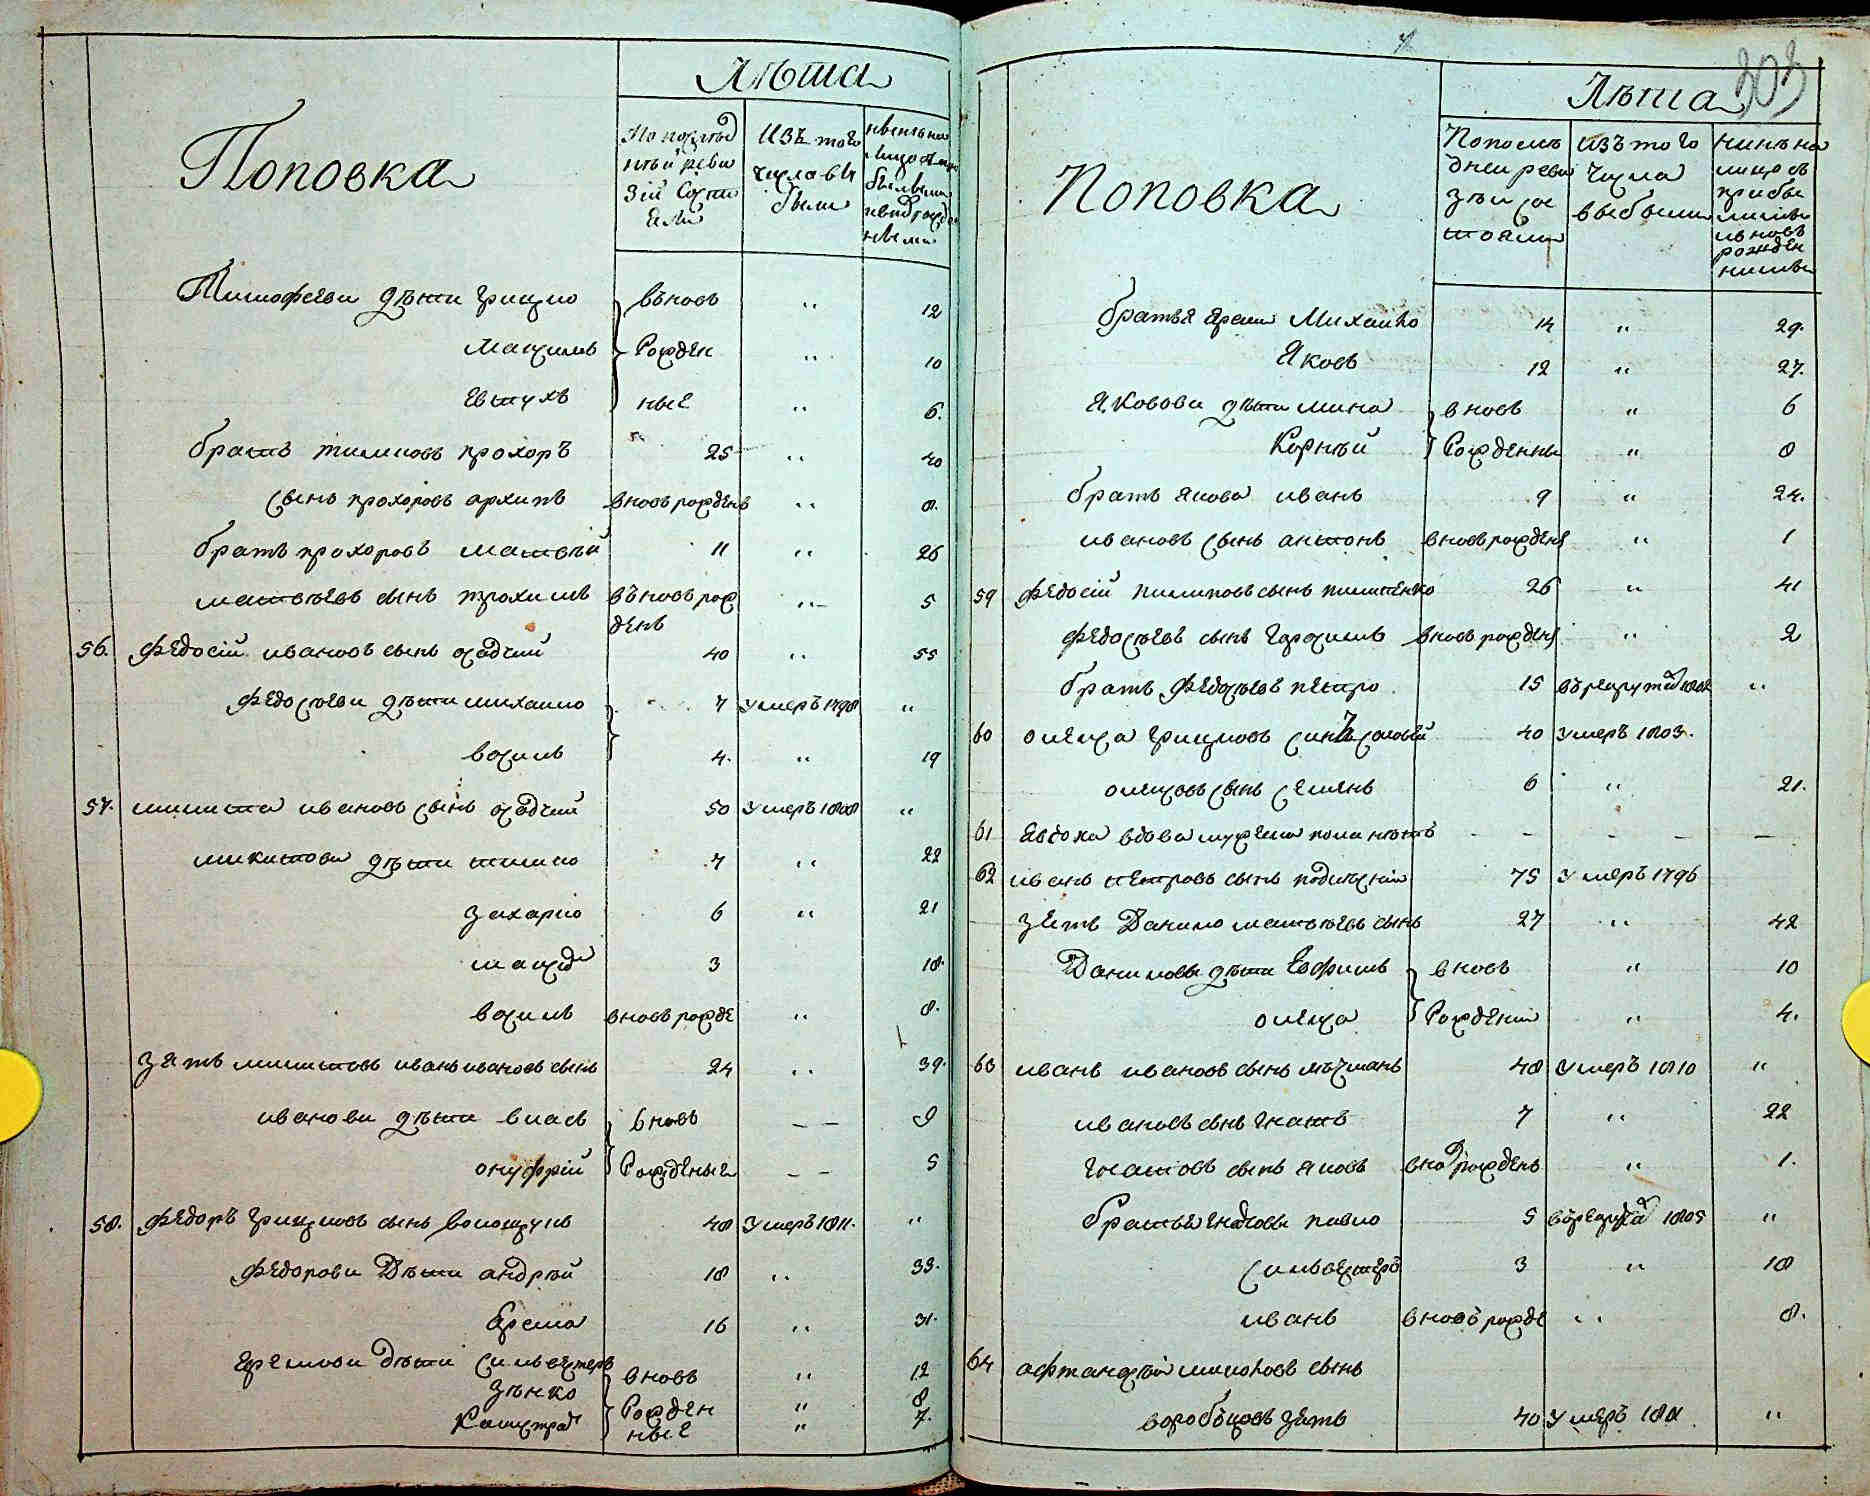 Лѣта
Поповка
По послѣд
нѣй реви
зій состо
яли
Изъ того
числа вы
были
Тимофееви дѣти грицко въновь " 12
максимъ рожден " 10
евтухъ ные " 6.
братъ тимковъ прохоръ 25 " 40
сынъ прохоровъ архипъ вновь рожденъ " 8.
братъ прохоровъ матвѣй 11 " 26
матвѣевъ сынъ трохимъ въновь рож " 5
денъ
56. Федосій ивановъ сынъ осадчий 40 " 55
Федосѣеви дѣти михайло 7 умеръ 1798 "
василь 4. " 19
57. микита ивановъ сынъ осадчий 50 умеръ 1808 "
микитови дѣти 7 " 22
захарко 6 " 21
3 18.
василь вновь рожде " 8.
зять микитовъ иванъ ивановъ сынъ 24 " 39.
иванови дѣти власъ вновь – – 9
онуфрій рожденые – – 5
58. Федоръ грицковъ сынъ волощукъ 48 умеръ 1811. "
Федорови дѣти андрѣй 18 " 33.
ярема 16 " 31.
яремови дѣти сильвестеръ вновь " 12
зѣнко рожден " 8
ные " 7.
303
Лѣта
Поповка
Попослѣ
дней реви
зѣи со
стояли
изъ того
числа
выбыли
нинѣ на
лицо съ
прибы
лими
ивновь
рожден
ними
братья яреми Михайло 14 " 29.
яковъ 12 " 27.
якоови дѣти мина вновь " 6
Корнѣй рожденны " 8
братъ якова иванъ 9 " 24.
ивановъ сынъ антонъ вновь рожденъ " 1
59 Федосій пилиповъ сынъ пилипенко 26 " 41
Федосѣевъ сынъ герасимъ вновь рожденъ " 2
братъ Федосѣевъ петро 15 въ рекруты 1802 "
60 олекса грицковъ синъ 40 умеръ 1803.
олексовъ сынъ семенъ 6 " 21.
61 Евдоха вдова мужеска пола нѣтъ – – – –
62 иванъ петровъ сынъ 75 умеръ 1796
зять Данило матвѣевъ сынъ 27 " 42
Данилови дѣти Евфимъ вновь " 10
олекса рождении " 4.
63 иванъ ивановъ сынъ 48 умеръ 1810 "
ивановъ сынъ гнатъ 7 " 22
гнатовъ сынъ яковъ внов рожденъ " 1.
братья гнатовы павло 5 въ рекруты 1805 "
сильвестеръ 3 " 18
иванъ вновь рожде " 8.
64 афтанасѣй сынъ
зять 40 умеръ "